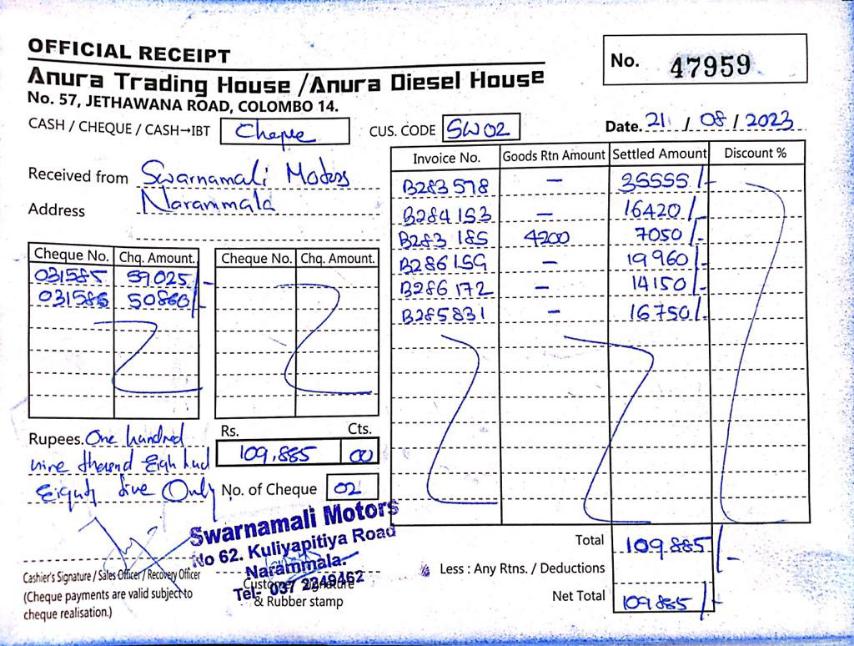 OFFICIAL RECEIPT
No. 47959
Anura Trading House /Anura Diesel House
No. 57, JETHAWANA ROAD, COLOMBO 14.
CASH / CHEQUE / CASH→IBT Cheque CUS. CODE SW02 Date. 21 / 08 / 2023
Received from Swarnamali Motors
Address Narammala
Cheque No. Chq. Amount. Cheque No. Chq. Amount.
031585 59025/-
031586 50860/-
Invoice No. Goods Rtn Amount Settled Amount Discount %
B283578 – 35555/-
B284153 – 16420/-
B283185 4200 7050/-
B286159 – 19960/-
B286172 – 14150/-
B285831 – 16750/-
Rupees. One hundred
nine thousand Eigh hud
Eighty five Only
Rs. Cts.
109,885 00
No. of Cheque 02
Swarnamali Motors
No 62. Kuliyapitiya Road
Narammala.
Tel- 037 2249462
Cashier's Signature / Sales Officer / Recovery Officer
(Cheque payments are valid subject to
cheque realisation.)
Customer Signature
& Rubber stamp
Total 109.885/-
Less : Any Rtns. / Deductions
Net Total 109885/-